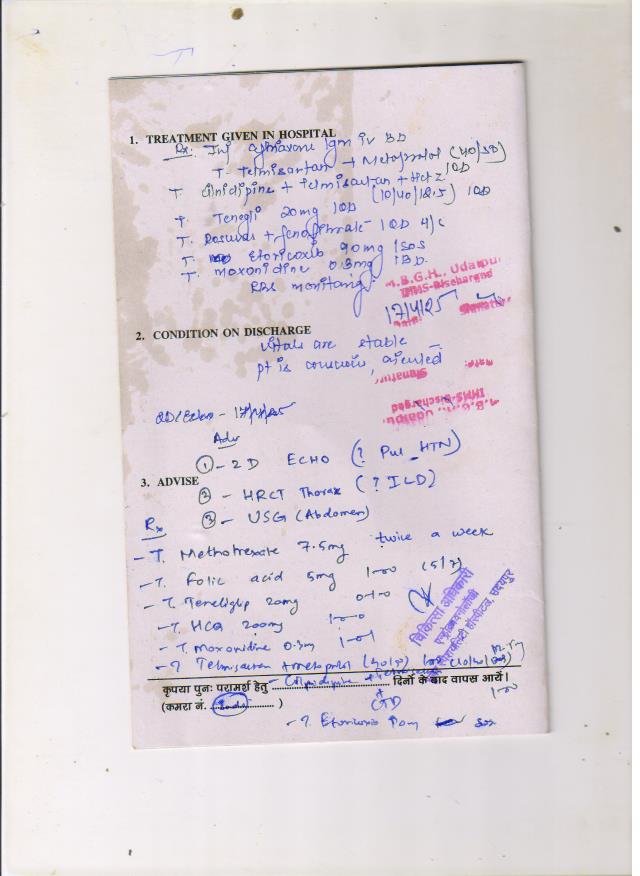 1. TREATMENT GIVEN IN HOSPITAL
Rx: Inj 1gm iv BD
T. Telmisartan + Metoprolol (40/50) 1OD
T. Clinidipine + telmisartan + Hctz
(10/40/12.5) 1OD
T. Tenegli 20mg 1OD
T. Rosuvas + fenofibrate 1OD
T. Etoricoxib 90mg 1SOS
T. moxonidine 0.3mg 1BD.
RBS monitoring
M.B.G.H., Udaipur
IMMS-Discharged
17/4/25
2. CONDITION ON DISCHARGE
Vitals are stable
pt is conscious, oriented
Signature
IMMS-Discharged
M.B.G.H., Udaipur
17/4/25
Adv
① - 2D ECHO (? Pul HTN)
3. ADVISE
② - HRCT Thorax (? ILD)
③ - USG (Abdomen)
Rx
- T. Methotrexate 7.5mg twice a week
- T. Folic acid 5mg 1-0-0 (5/7)
- T. Teneliglip 20mg 0-1-0
- T. HCQ 200mg 1-0-0
- T. Moxonidine 0.3mg 1-0-1
- T. Telmisartan + metoprolol (40/50)
चिकित्सा अधिकारी
हॉस्पीटल, उदयपुर
कृपया पुनः परामर्श हेतु .......... दिनों के बाद वापस आयें।
1-0-0
(कमरा नं. .......... )
- T. Etoricoxib SOS